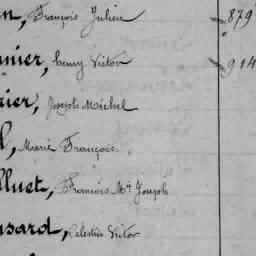 n, François Julien 879
nier, henry Victor 914
ier, Joseph Michel
l, Marie François
lluet, François Mie Joseph
usard, Celestin Victor